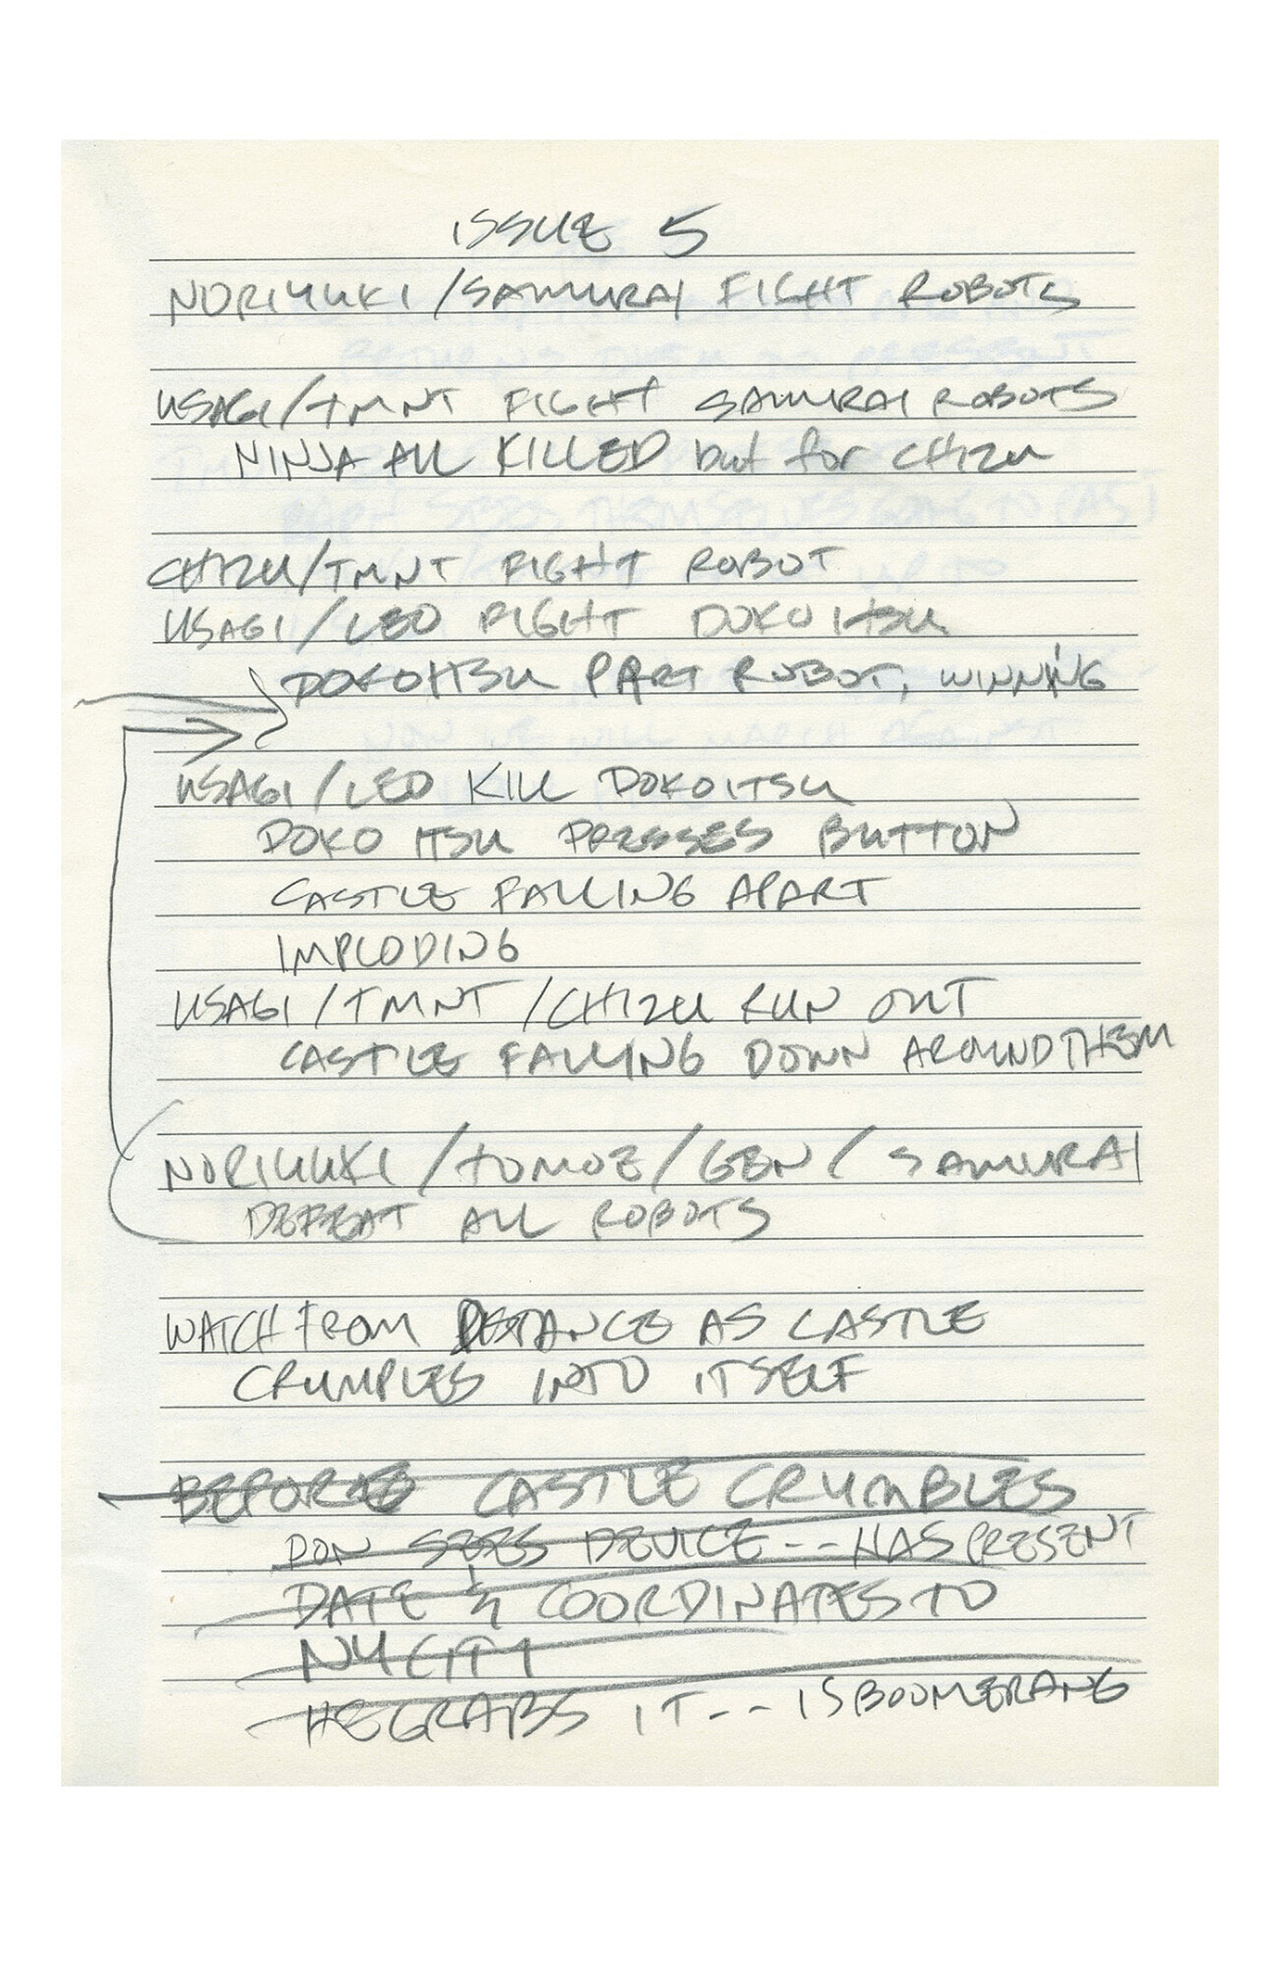 ISSUE 5
NORIYUKI/SAMURAI FIGHT ROBOTS
USAGI/TMNT FIGHT SAMURAI ROBOTS
NINJA ALL KILLED but for CHIZU
CHIZU/TMNT FIGHT ROBOT
USAGI/LEO FIGHT DOKOITSU
DOKOITSU PART ROBOT, WINNING
USAGI/LEO KILL DOKOITSU
DOKOITSU PRESSES BUTTON
CASTLE FALLING APART
IMPLODING
USAGI/TMNT/CHIZU RUN OUT
CASTLE FALLING DOWN AROUND THEM
NORIYUKI/TOMOE/GEN/SAMURAI
DEFEAT ALL ROBOTS
WATCH FROM DISTANCE AS CASTLE
CRUMPLES INTO ITSELF
BEFORE CASTLE CRUMBLES
DON SEES DEVICE -- HAS PRESENT
DATE & COORDINATES TO
NY CITY
HE GRABS IT -- IS BOOMERANG